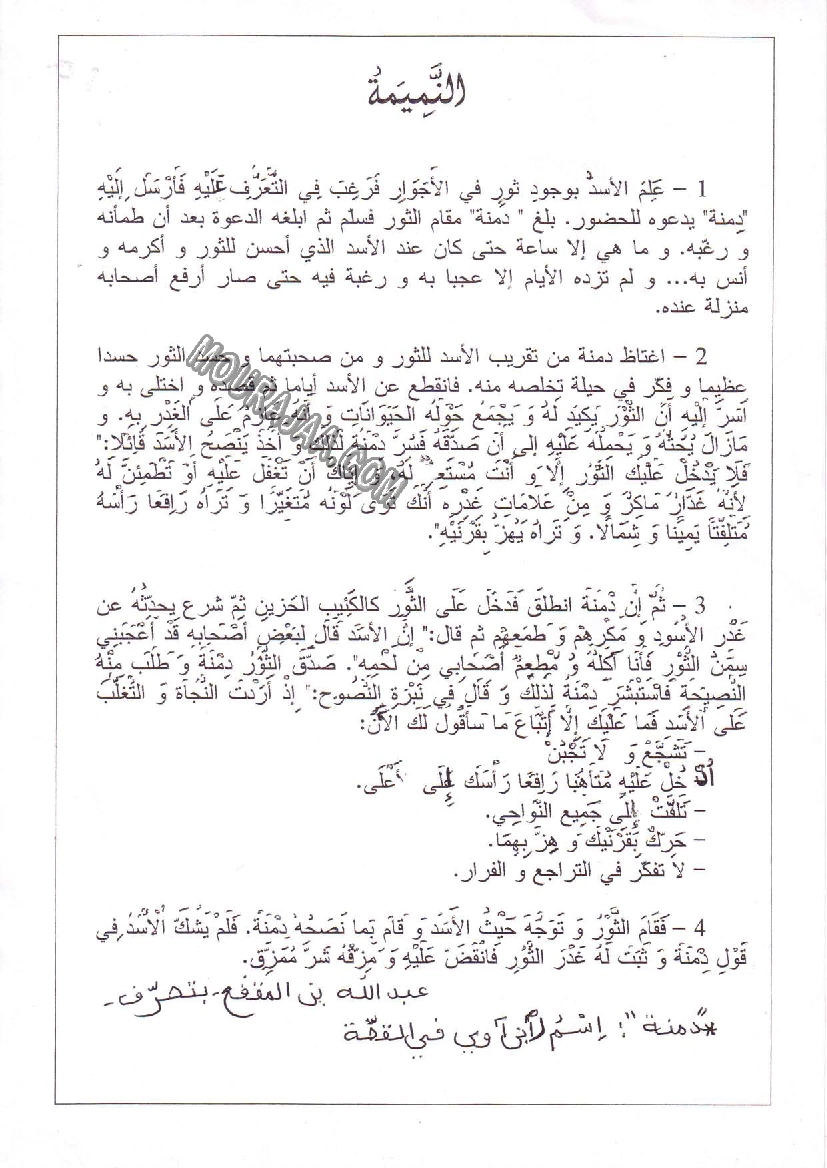 النَّمِيمَةُ
1 – عَلِمَ الأسدُ بوجودِ ثورٍ في الأَجْوَارِ فَرَغِبَ فِي التَّعَرُّفِ عَلَيْهِ فَأَرْسَلَ إِلَيْهِ
"دِمنة" يدعوه للحضور. بلغ " دمنة" مقام الثور فسلم ثم ابلغه الدعوة بعد أن طمأنه
و رغّبه. و ما هي إلا ساعة حتى كان عند الأسد الذي أحسن للثور و أكرمه و
أنس به... و لم تزده الأيام إلا عجبا به و رغبة فيه حتى صار أرفع أصحابه
منزلة عنده.
2 – اغتاظ دمنة من تقريب الأسد للثور و من صحبتهما و حسد الثور حسدا
عظيما و فكّر في حيلة تخلصه منه. فانقطع عن الأسد أياما ثم قصده و اختلى به و
أسَرَّ إليه أنّ الثّوْرَ يَكِيدُ لَهُ وَ يَجْمَعُ حَوْلَهُ الحَيَوَانَاتِ وَ أنّهُ عَازِمٌ عَلَى الغَدْرِ بِهِ. و
مَازَالَ يَحُثُّهُ وَ يَحْمِلُهُ عَلَيْهِ إلى أنْ صَدَّقَهُ فَسُرَّ دِمْنَةُ لِذَلِكَ وَ أخَذَ يَنْصَحُ الأسَدَ قَائِلًا:"
فَلَا يَدْخُلْ عَلَيْكَ الثَّوْرُ إلَّا وَ أنْتَ مُسْتَعِدٌّ لَهُ، وَ إيَّاكَ أنْ تَغْفَلَ عَلَيْهِ أوْ تَطْمَئِنَّ لَهُ
لأنّهُ غَدَّارٌ مَاكِرٌ وَ مِنْ عَلَامَاتِ غَدْرِهِ أنّكَ تَرَى لَوْنَهُ مُتَغَيِّرًا وَ تَرَاهُ رَافِعًا رَأْسَهُ
مُتَلَفِّتًا يَمِينًا وَ شِمَالًا. وَ تَرَاهُ يَهُزُّ بِقَرْنَيْهِ".
3 – ثُمَّ إنّ دِمْنَةَ انطلقَ فَدَخَلَ عَلَى الثَّوْرِ كالكَئِيبِ الحَزِينِ ثمّ شرع يحدّثُهُ عن
غَدْرِ الأسُودِ وَ مَكْرِهِمْ وَ طَمَعِهِمْ ثم قال:" إنّ الأسَدَ قَالَ لِبَعْضِ أصْحَابِهِ قَدْ أعْجَبَنِي
سِمَنُ الثَّوْرِ فَأنَا آكِلُهُ وَ مُطْعِمٌ أصْحَابِي مِنْ لَحْمِهِ". صَدَّقَ الثَّوْرُ دِمْنَةَ وَ طَلَبَ مِنْهُ
النَّصِيحَةَ فَاسْتَبْشَرَ دِمْنَةُ لِذَلِكَ وَ قَالَ فِي نَبْرَةِ النَّصُوحِ:" إذْ أرَدْتَ النَّجَاةَ وَ التَّغَلُّبَ
عَلَى الأسَدِ فَمَا عَلَيْكَ إلَّا إتْبَاعَ مَا سَأقُولُ لَكَ الآنَ:
– تَشَجَّعْ وَ لَا تَجْبُنْ
اُدْخُلْ عَلَيْهِ مُتَأهِّبًا رَافِعًا رَأسَكَ إلَى أعْلَى.
– تَلَفَّتْ إلَى جَمِيعِ النَّوَاحِي.
– حَرِكْ بِقَرْنَيْكَ وَ هِزَّ بِهِمَا.
– لا تفكّر في التراجع و الفرار.
4 – فَقَامَ الثَّوْرُ وَ تَوَجَّهَ حَيْثُ الأسَدَ وَ قَامَ بِمَا نَصَحَهُ دِمْنَةُ. فَلَمْ يَشُكّ الْأسَدُ فِي
قَوْلِ دِمْنَةَ وَ ثَبَتَ لَهُ غَدْرَ الثَّوْرِ فَانْقَضَّ عَلَيْهِ وَ مَزَّقَهُ شَرَّ مُمَزَّقٍ.
عبد الله بن المقفع - بتصرّف -
*"دمنة": إسْمٌ لأبن آوي في القصّة
MOURAJAA.COM